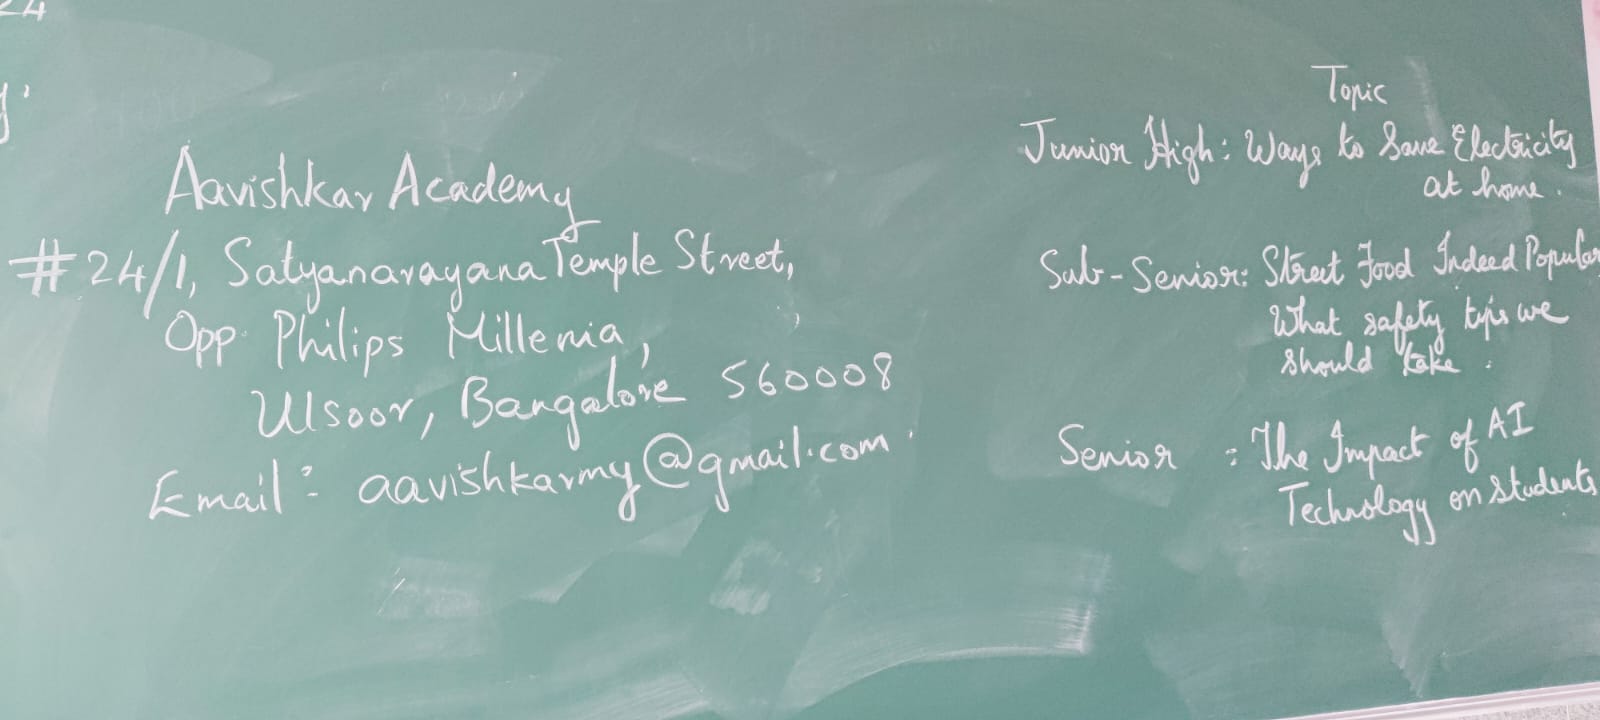 24
Aavishkar Academy
#24/1, Satyanarayana Temple Street,
Opp. Philips Millenia,
Ulsoor, Bangalore 560008
Email: aavishkarmy@gmail.com
Topic
Junior High: Ways to Save Electricity
at home.
Sub-Senior: Street Food Indeed Popular
What safety tips we
should take.
Senior : The Impact of AI
Technology on Students